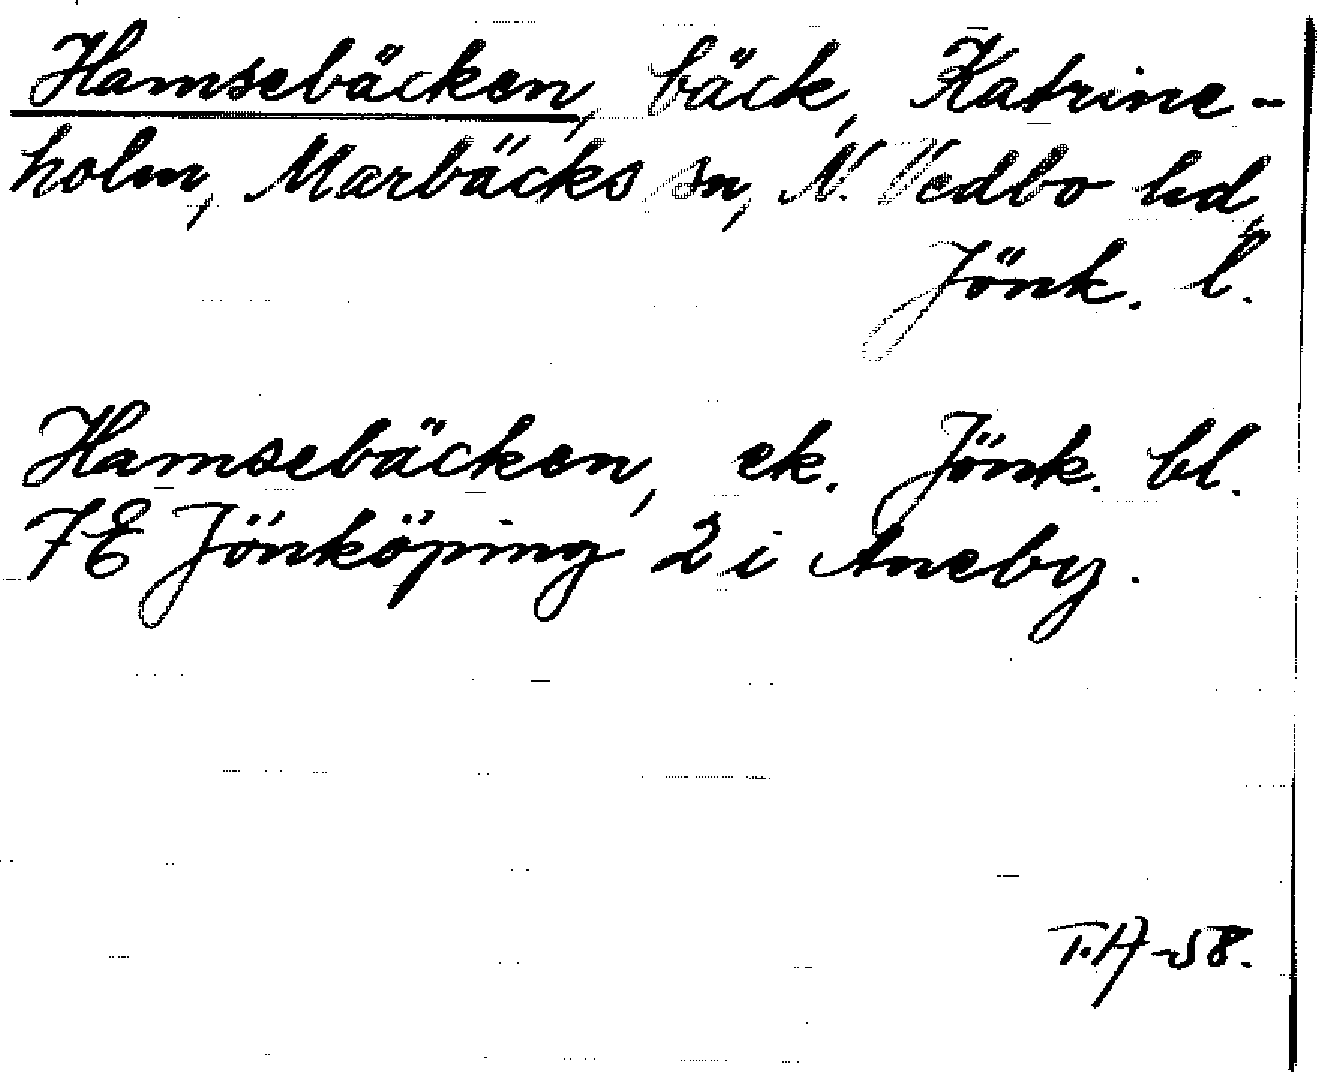 Hamsebäcken, bäck, Katrine-
holm, Marbäcks sn, N. Vedbo hd,
Jönk. l.
Hamsebäcken, ek. Jönk. bl.
7E Jönköping 2 i Aneby.
T.A-58.